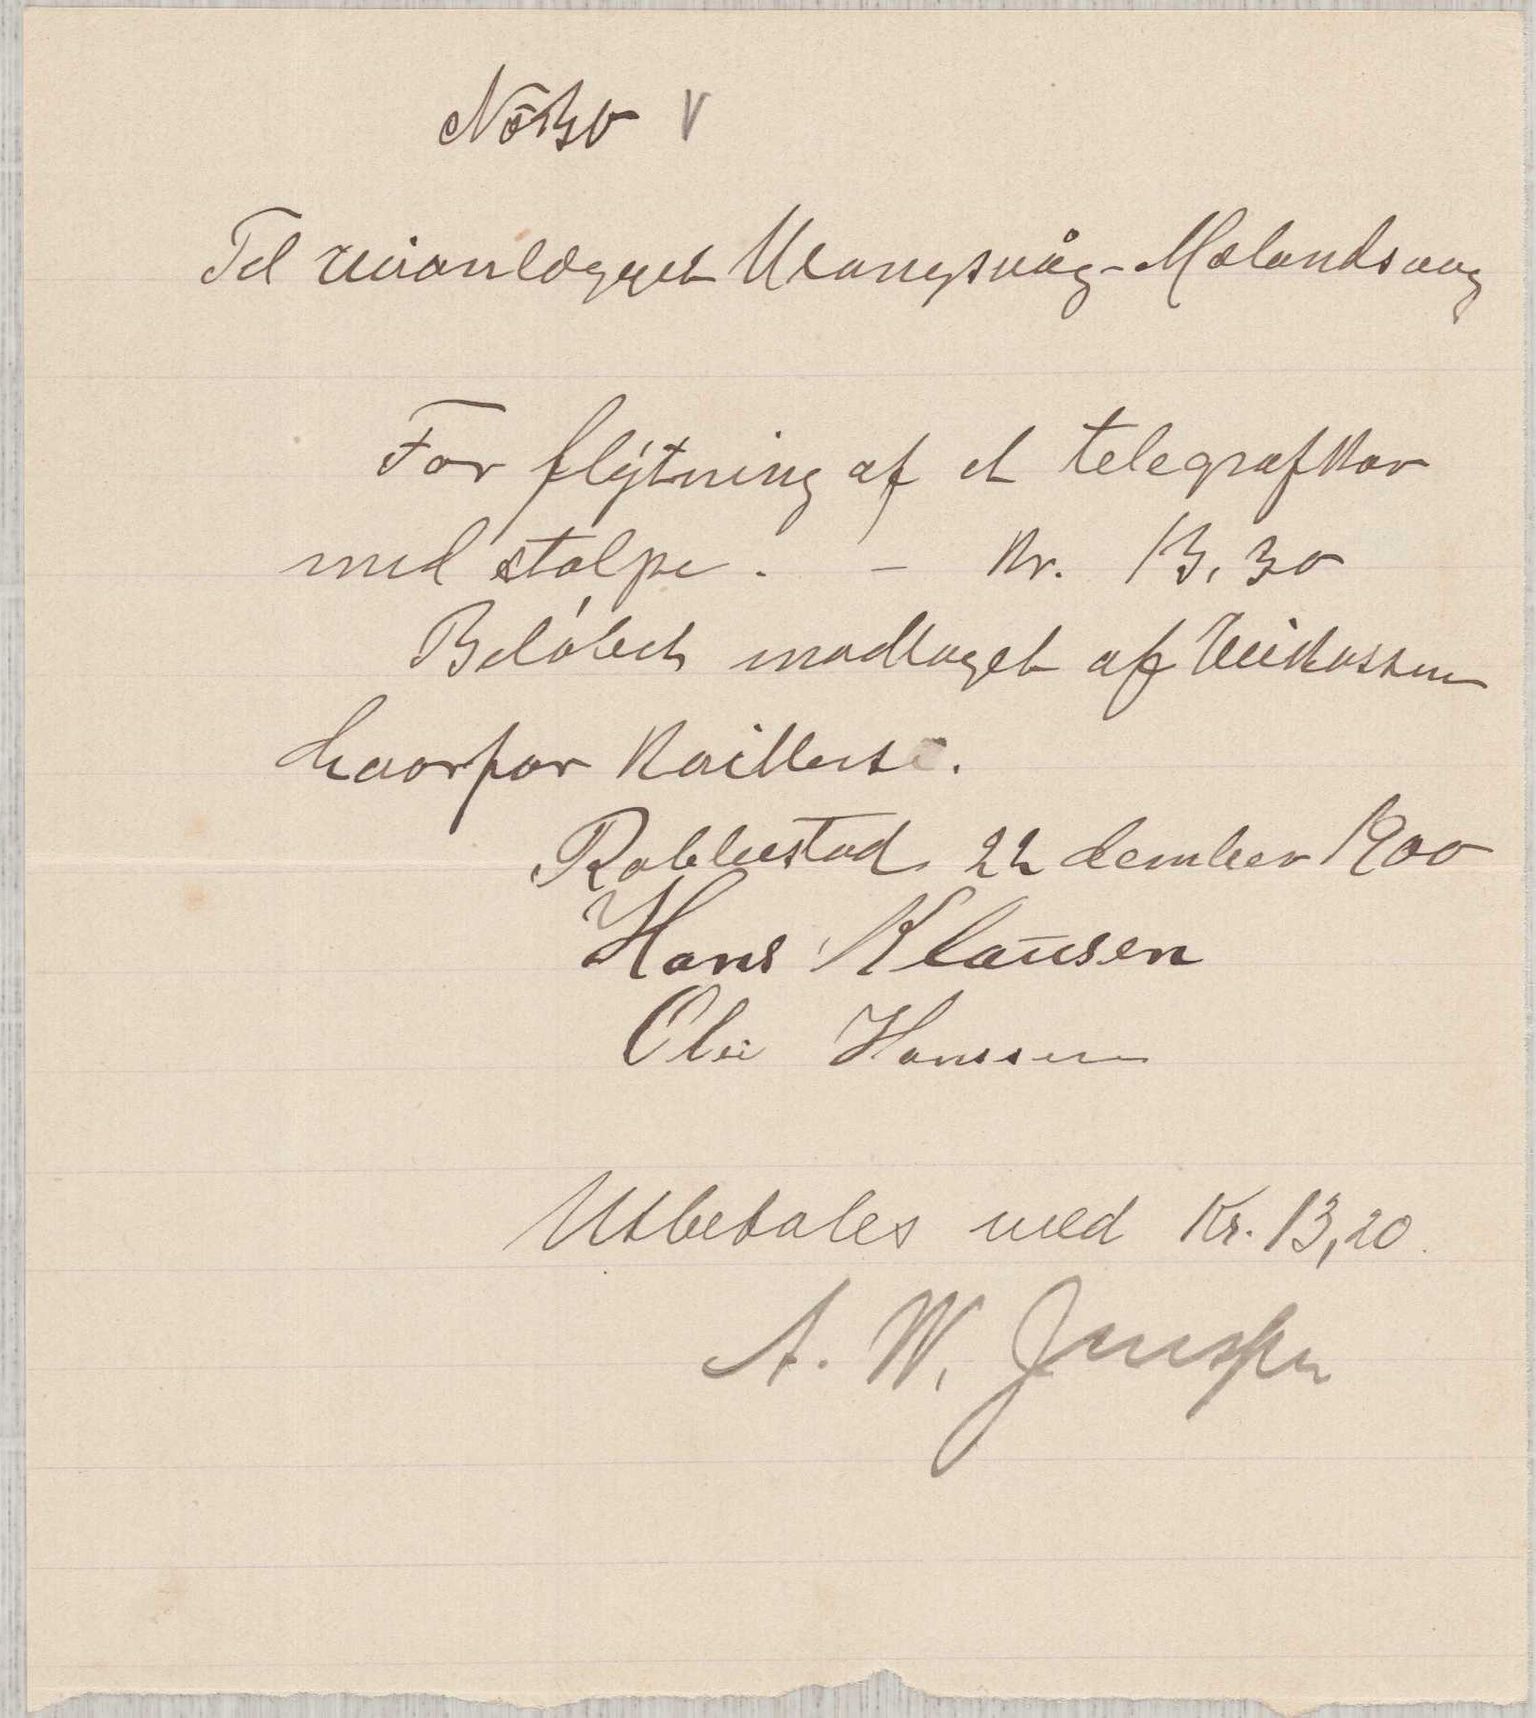 Nóta V
Til veianlægget Urangsvåg-Mælandsvaag
For flÿtning af et telegrafkar
med stolpe. - Kr. 13,30
Beløbet modtaget af Veikassen
hvorfor kvitters.
Rabbestad 22 desember 1900
Hans Klaūsen
Olai Hanssen
Utbetales med Kr. 13,20.
A. W.